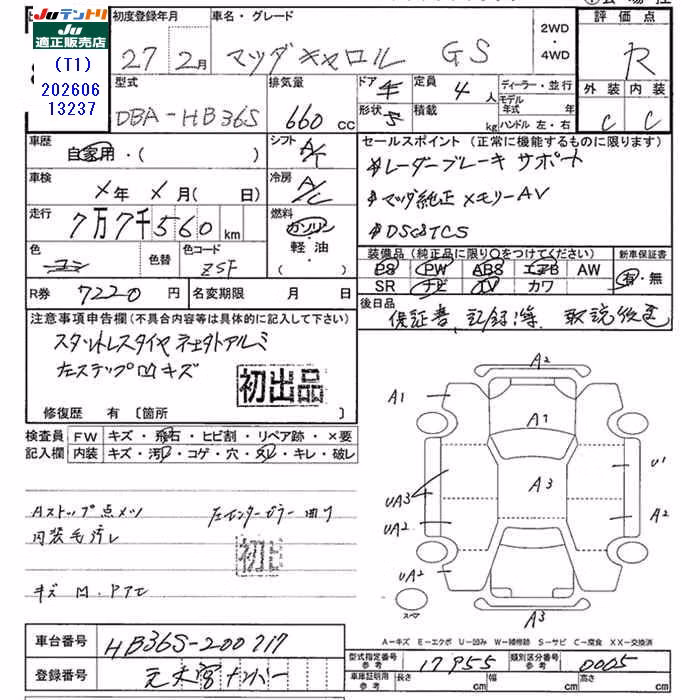 JUテントリ
JU 適正販売店
(T1)
202606
13237
初度登録年月
27 2月
車名・グレード
マツダキャロル GS
2WD
・
4WD
評価点
R
型式
DBA-HB36S
排気量
660 CC
ドア
形状 5
定員 4 人
積載 kg
ディーラー・並行
モデル年式 年
ハンドル 左・右
外装 内装
C C
車歴
自家用・( )
シフト
A/C
車検
X年 X月( 日)
冷房
A/C
走行
7万7千560 km
燃料
ガソリン
軽・油
・( )
色
色替
色コード
ZSF
R券 7220 円
名変期限 月 日
セールスポイント(正常に機能するものに限ります)
レーダーブレーキサポート
マツダ純正メモリーAV
DSC&TCS
装備品(純正品に限り○をつけてください)
PS PW ABS エアB AW
SR ナビ TV カワ
新車保証書
有・無
後日品
保証書、記録簿、取説後送
注意事項申告欄(不具合内容等は具体的に記入して下さい)
スタットレスタイヤ 社外アルミ
左ステップ凹キズ
初出品
修復歴 有 〔箇所 〕
検査員記入欄
FW キズ・飛石・ヒビ割・リペア跡・×要
内装 キズ・汚レ・コゲ・穴・スレ・キレ・破レ
Aストップ点メツ 左センターピラー曲り
内装毛汚レ
初出
キズ 凹、
A2
A1
A1
U1
A3
UA3
A2
UA2
UA2
A3
スペア
A-キズ E-エクボ U-凹み W-補修跡 S-サビ C-腐食 XX-交換済
車台番号
HB36S-200717
登録番号
元大宮ナンバー
型式指定番号
参考
17955
類別区分番号
参考
0005
車庫証明用
参考
長さ cm
幅 cm
高さ cm